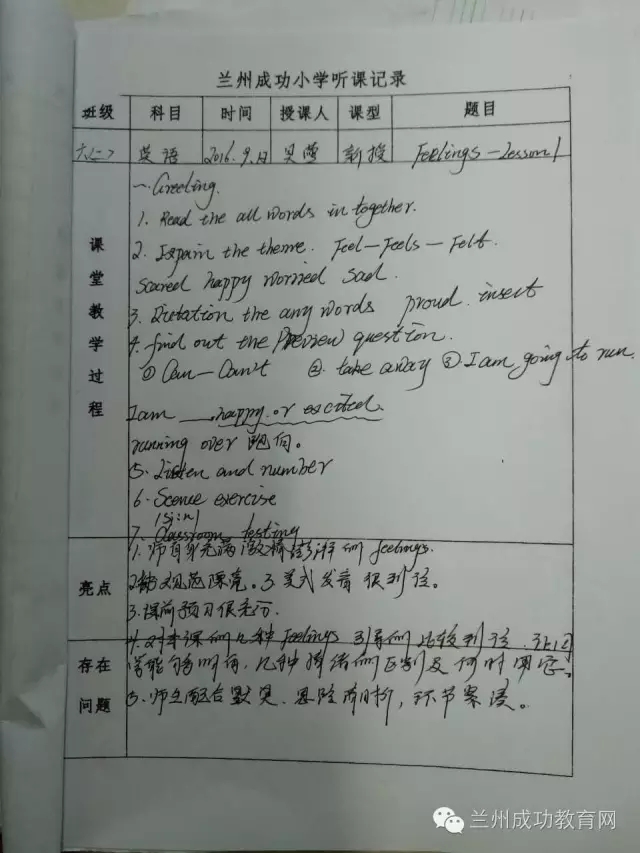 兰州成功小学听课记录
班级 科目 时间 授课人 课型 题目
六(二) 英语 2016.9. 吴莹 新授 Feelings - Lesson 1
课堂教学过程
一、Greeting.
1. Read the all words in together.
2. Expain the theme. Feel - Feels - Felt.
scared happy worried sad.
3. Dictation the any words proud. insect
4. find out the Preview question.
① Can - Can't ② take away ③ I am going to run.
I am ___ happy or excited.
running over 跑向。
5. Listen and number
6. Scence exercise
7. Classroom testing
亮点
1. 师自身充满激情澎湃的 feelings.
课堂。3 美式发音很到位。
3. 课前预习很充分.
存在问题
4. 对本课的几种 feelings 引导的比较到位，让同
学能够明确，几种情绪的区别及何时用它。
5. 师生配合默契、思路清晰，环节紧凑。
兰州成功教育网